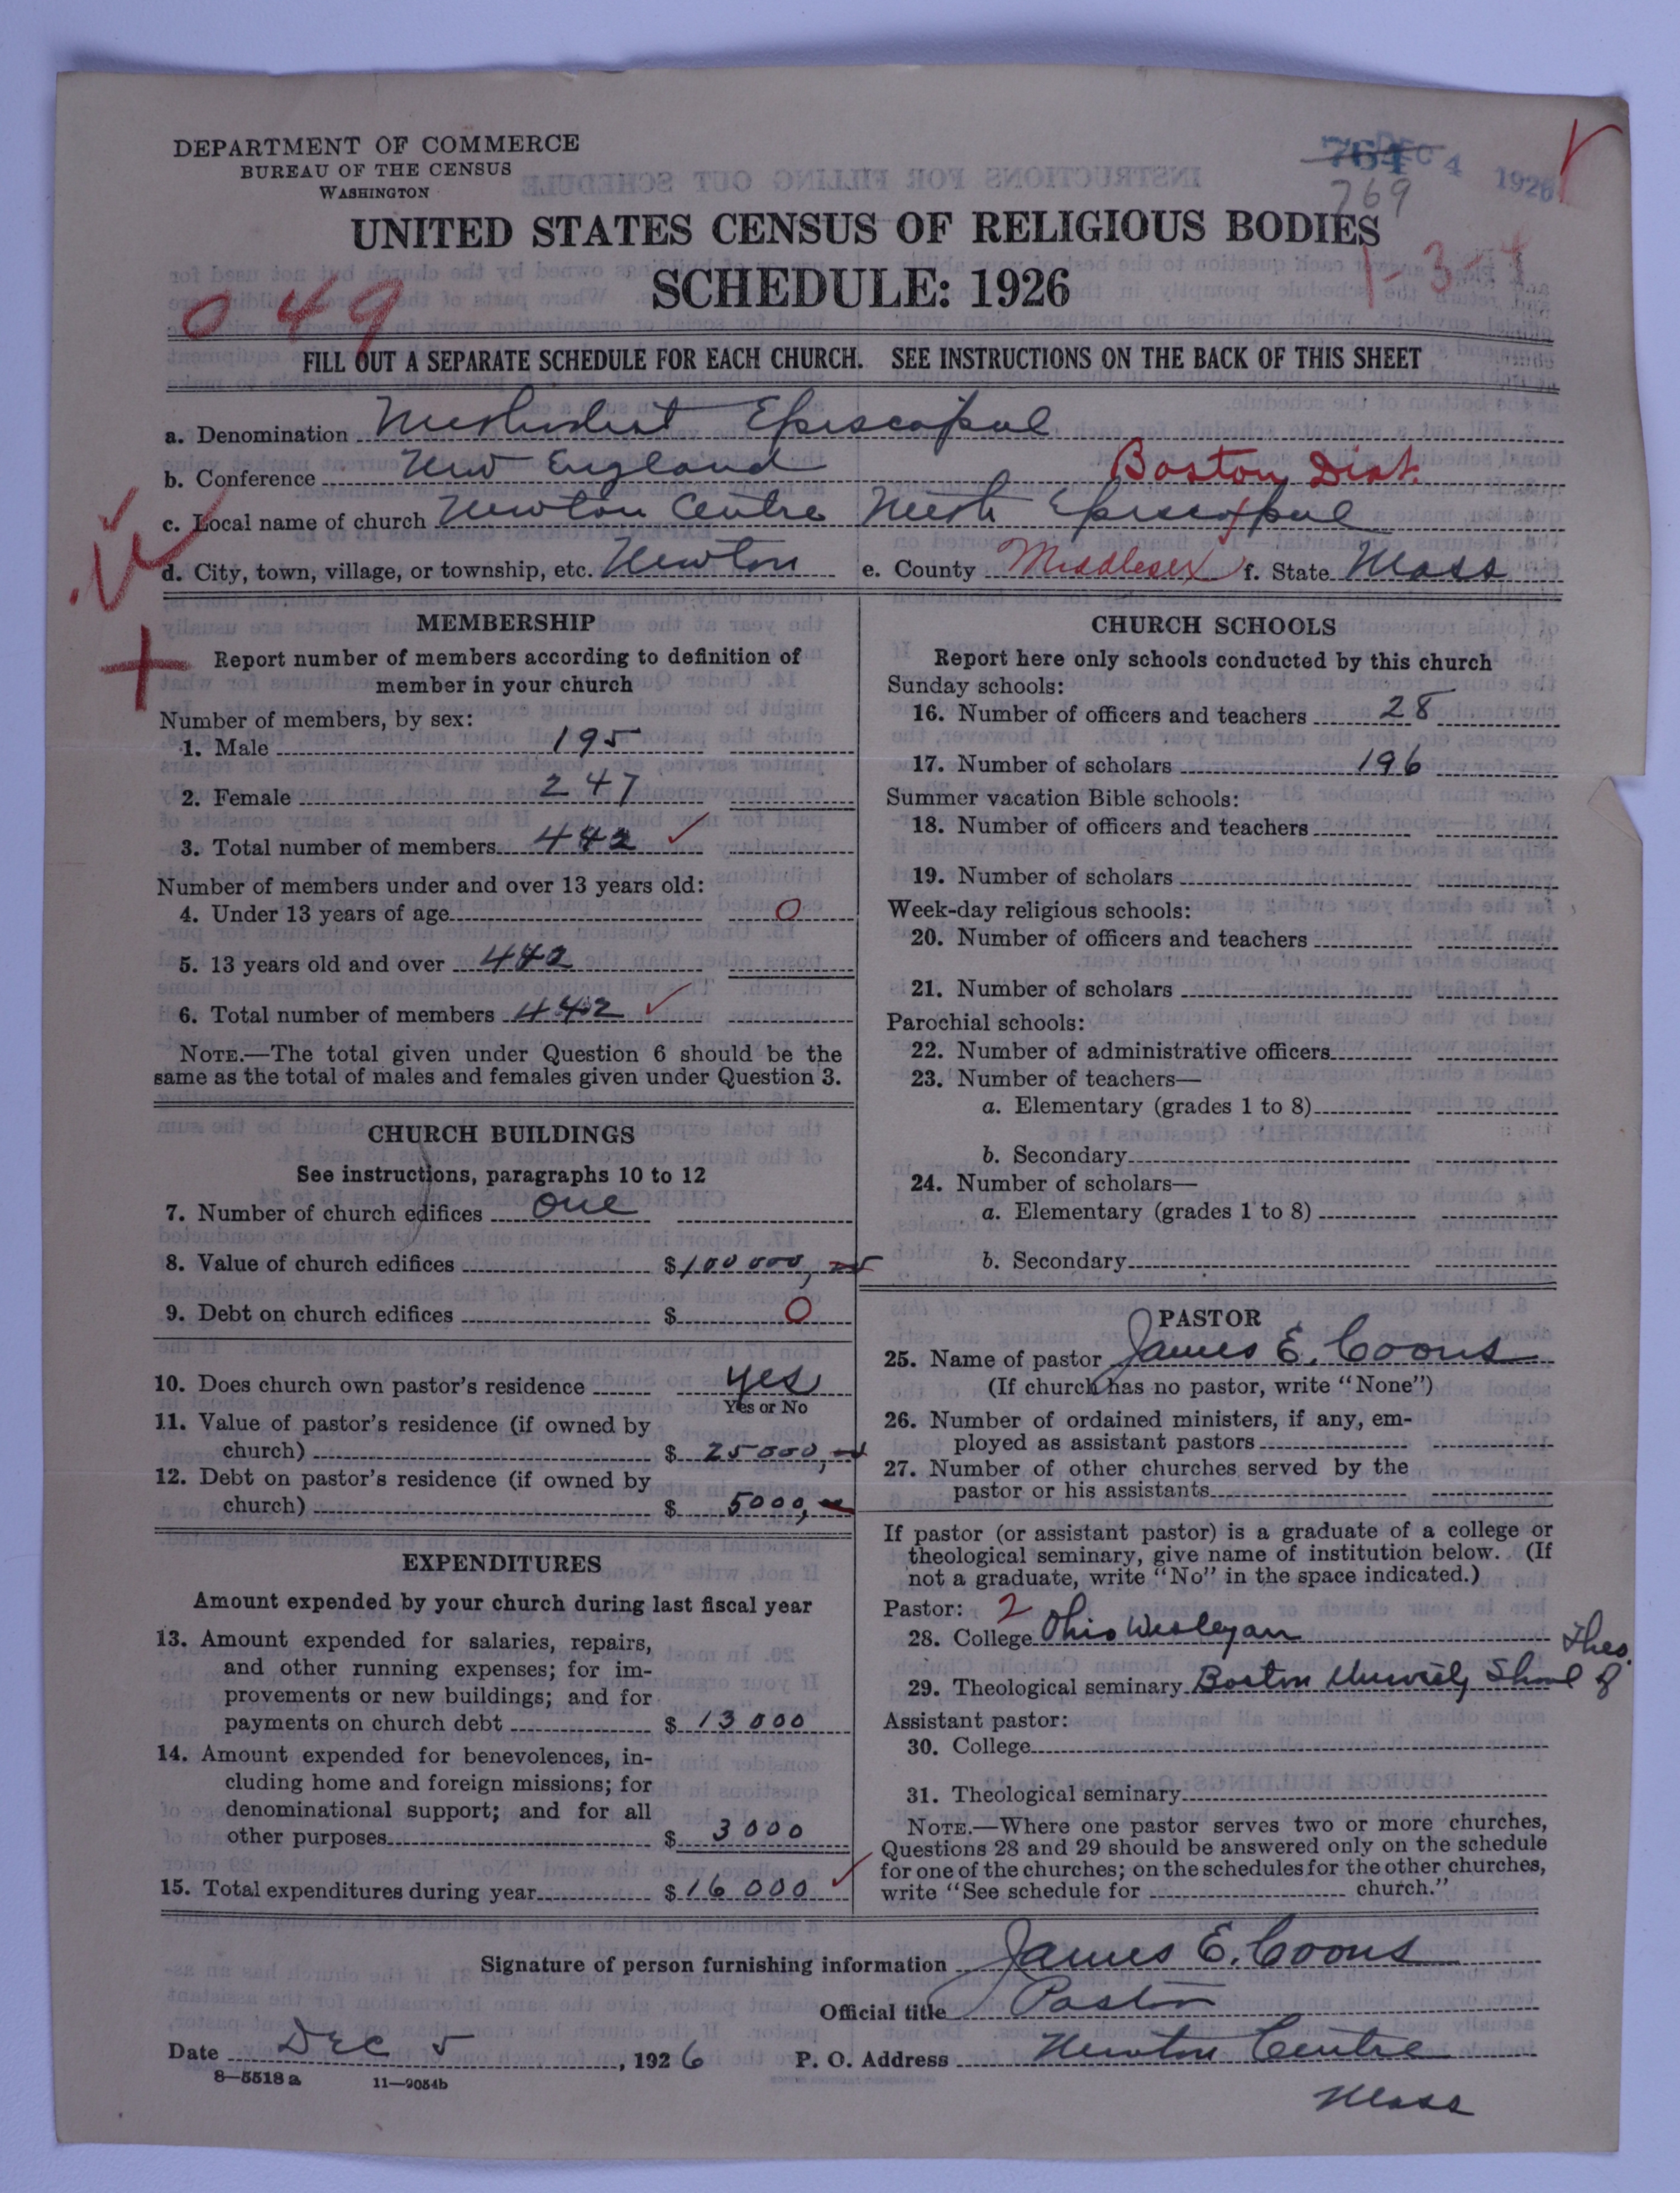 DEPARTMENT OF COMMERCE
BUREAU OF THE CENSUS
WASHINGTON
764 DEC 4 1926
769
UNITED STATES CENSUS OF RELIGIOUS BODIES
SCHEDULE: 1926
049
1-3-1
FILL OUT A SEPARATE SCHEDULE FOR EACH CHURCH. SEE INSTRUCTIONS ON THE BACK OF THIS SHEET
a. Denomination Methodist Episcopal
b. Conference New England Boston Dist.
c. Local name of church Newton Centre Meth Episcopal
d. City, town, village, or township, etc. Newton e. County Middlesex f. State Mass
MEMBERSHIP
Report number of members according to definition of
member in your church
Number of members, by sex:
1. Male 195
2. Female 247
3. Total number of members 442
Number of members under and over 13 years old:
4. Under 13 years of age 0
5. 13 years old and over 442
6. Total number of members 442
NOTE.—The total given under Question 6 should be the
same as the total of males and females given under Question 3.
CHURCH BUILDINGS
See instructions, paragraphs 10 to 12
7. Number of church edifices one
8. Value of church edifices $100 000,
9. Debt on church edifices $ 0
10. Does church own pastor's residence yes
Yes or No
11. Value of pastor's residence (if owned by
church) $ 25 000,
12. Debt on pastor's residence (if owned by
church) $ 5000,
EXPENDITURES
Amount expended by your church during last fiscal year
13. Amount expended for salaries, repairs,
and other running expenses; for im-
provements or new buildings; and for
payments on church debt $ 13 000
14. Amount expended for benevolences, in-
cluding home and foreign missions; for
denominational support; and for all
other purposes $ 3 000
15. Total expenditures during year $ 16 000
CHURCH SCHOOLS
Report here only schools conducted by this church
Sunday schools:
16. Number of officers and teachers 28
17. Number of scholars 196
Summer vacation Bible schools:
18. Number of officers and teachers
19. Number of scholars
Week-day religious schools:
20. Number of officers and teachers
21. Number of scholars
Parochial schools:
22. Number of administrative officers
23. Number of teachers—
a. Elementary (grades 1 to 8)
b. Secondary
24. Number of scholars—
a. Elementary (grades 1 to 8)
b. Secondary
PASTOR
25. Name of pastor James E. Coons
(If church has no pastor, write "None")
26. Number of ordained ministers, if any, em-
ployed as assistant pastors
27. Number of other churches served by the
pastor or his assistants
If pastor (or assistant pastor) is a graduate of a college or
theological seminary, give name of institution below. (If
not a graduate, write "No" in the space indicated.)
Pastor: 2
28. College Ohio Wesleyan
29. Theological seminary Boston University School of Theo.
Assistant pastor:
30. College
31. Theological seminary
NOTE.—Where one pastor serves two or more churches,
Questions 28 and 29 should be answered only on the schedule
for one of the churches; on the schedules for the other churches,
write "See schedule for church."
Signature of person furnishing information James E. Coons
Official title Pastor
Date Dec 5, 1926 P. O. Address Newton Centre
Mass
8—5518 a 11—9054b